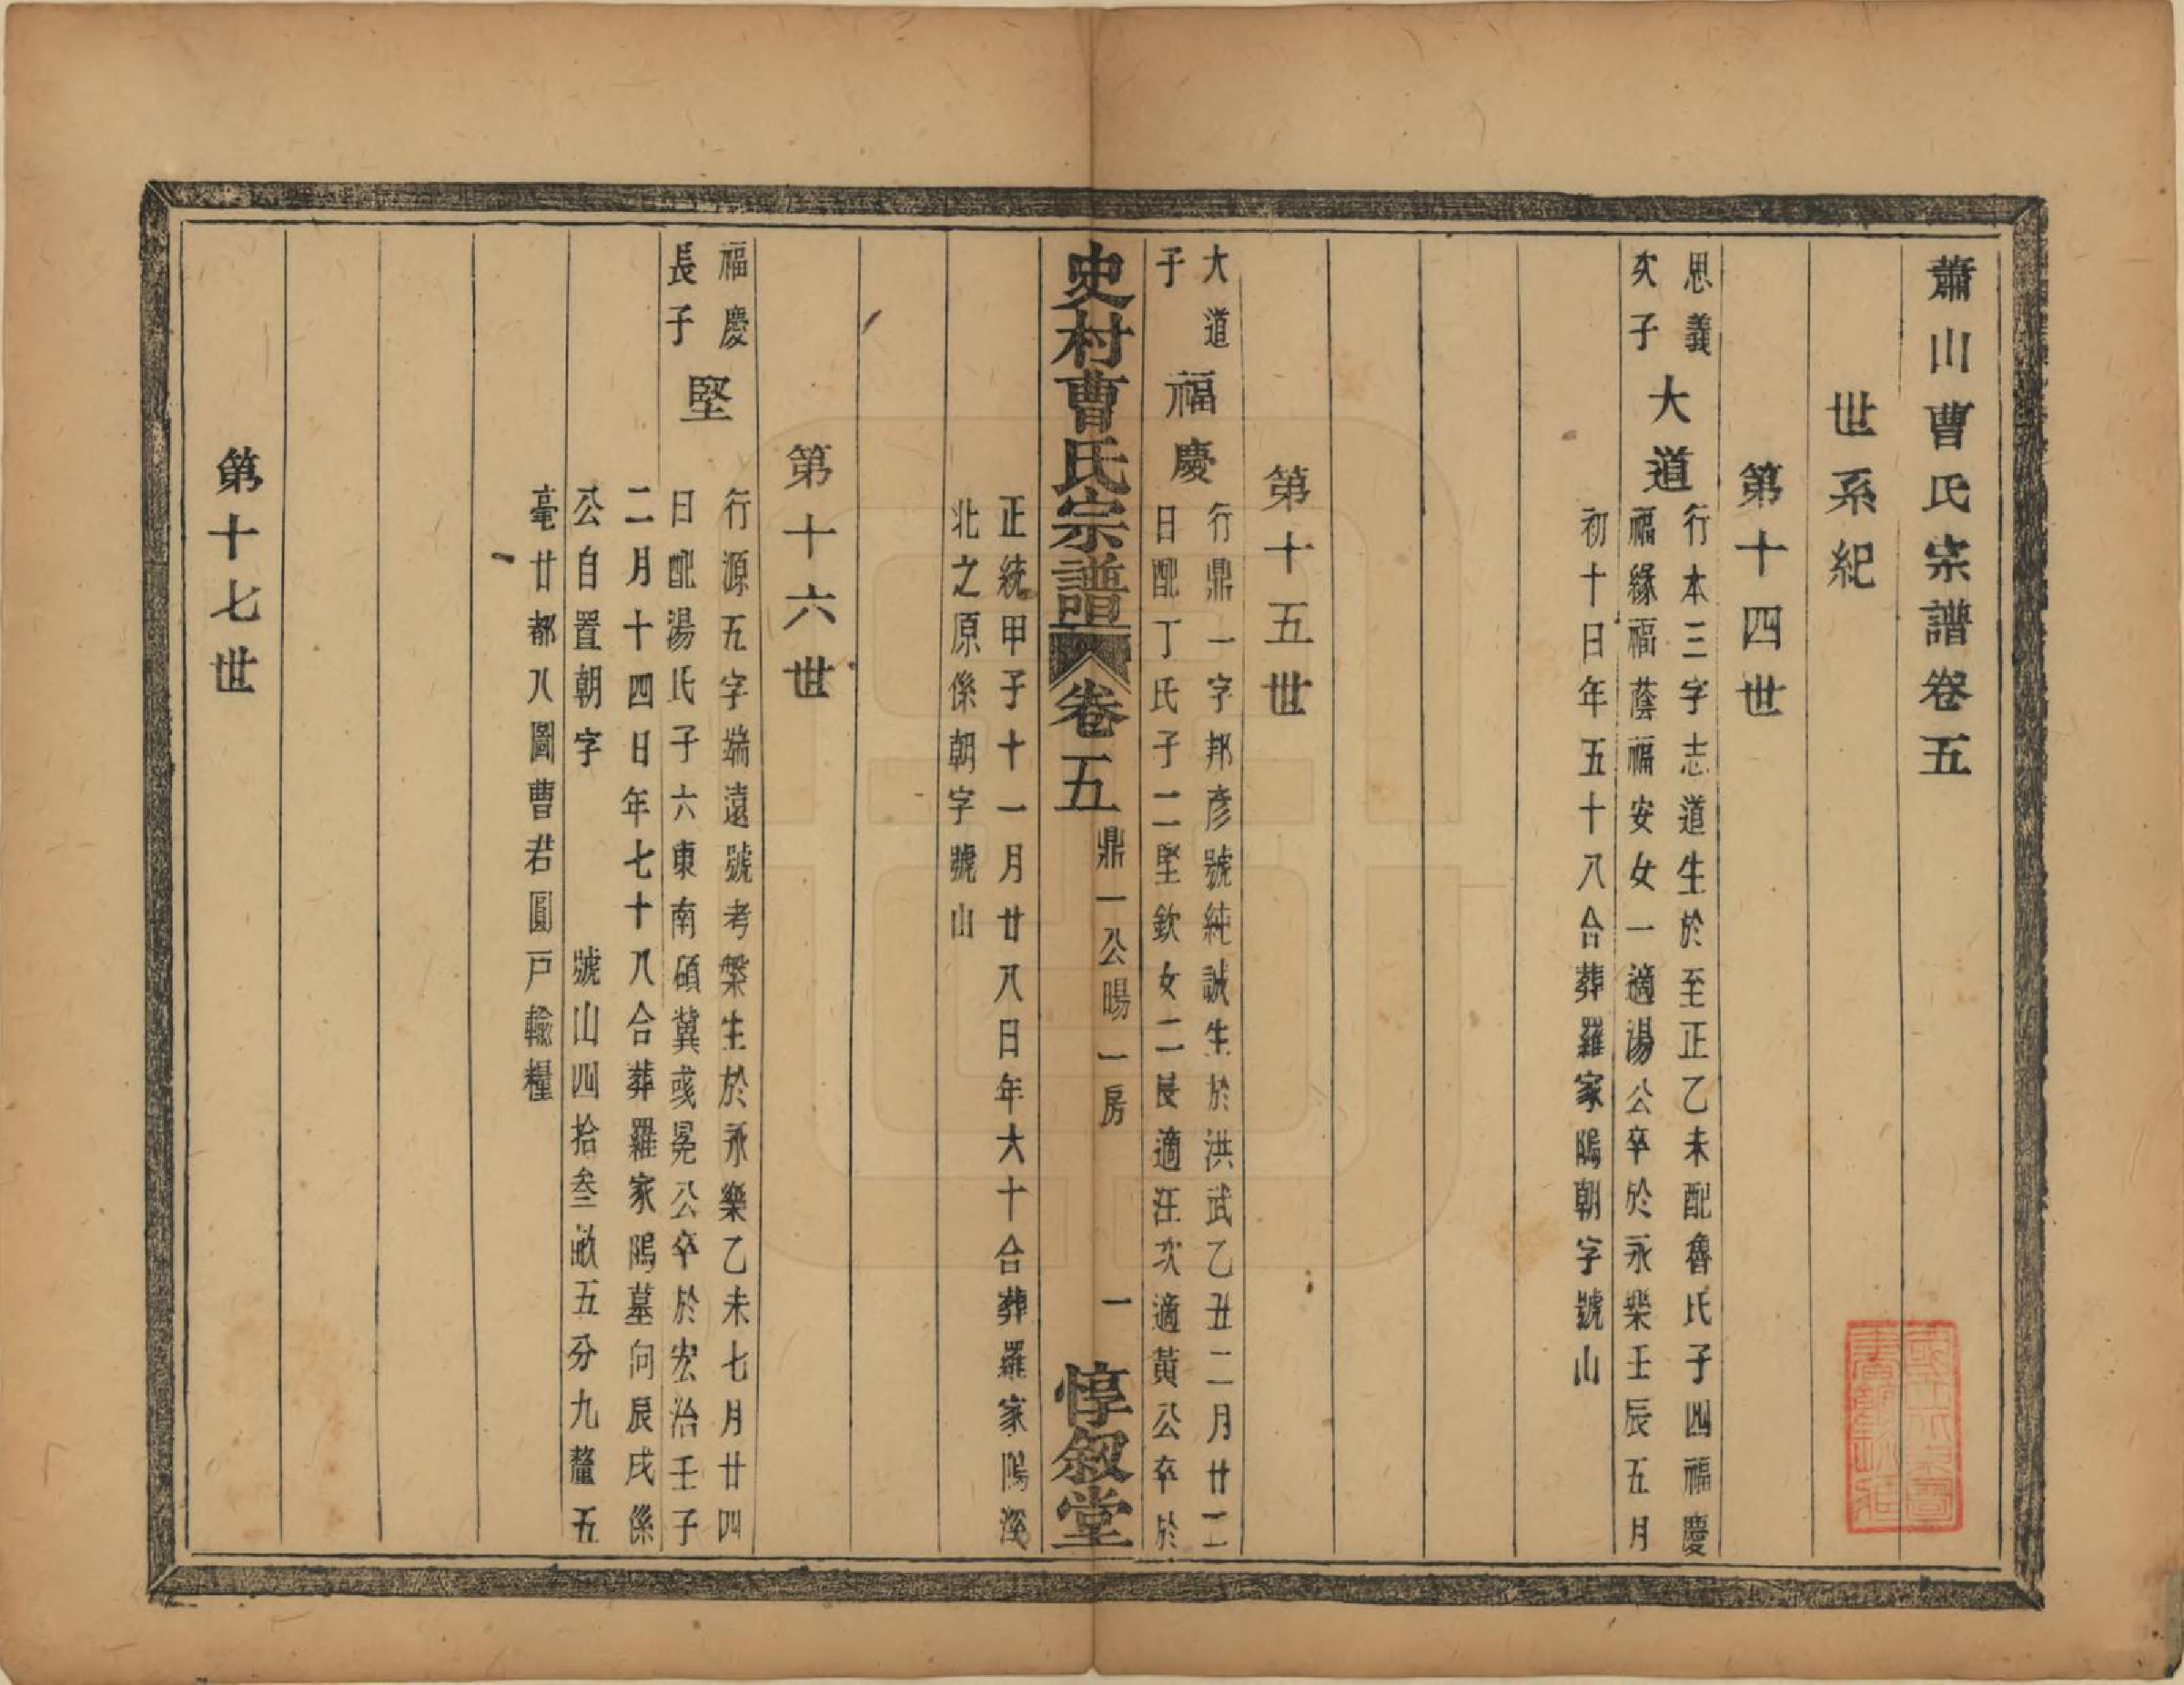 蕭山曹氏宗譜卷五
世系紀
第十四世
思義
次子
大道
行本三字志道生於至正乙未配魯氏子四福慶
福緣福蔭福安女一適湯公卒於永樂壬辰五月
初十日年五十八合葬羅家隖朝字號山
第十五世
大道
子
福慶
行鼎一字邦彥號純誠生於洪武乙丑二月廿二
日配丁氏子二堅欽女二長適汪次適黃公卒於
史村曹氏宗譜
卷五
鼎一公暘一房
一
惇叙堂
正統甲子十一月廿八日年六十合葬羅家隖溪
北之原係朝字號山
第十六世
福慶
長子
堅
行源五字端遠號考槃生於永樂乙未七月廿四
日配湯氏子六東南碩冀彧晃公卒於宏治壬子
二月十四日年七十八合葬羅家隖墓向辰戌係
公自置朝字 號山四拾叄畝五分九釐五
毫廿都八圖曹君圓戶輸糧
第十七世